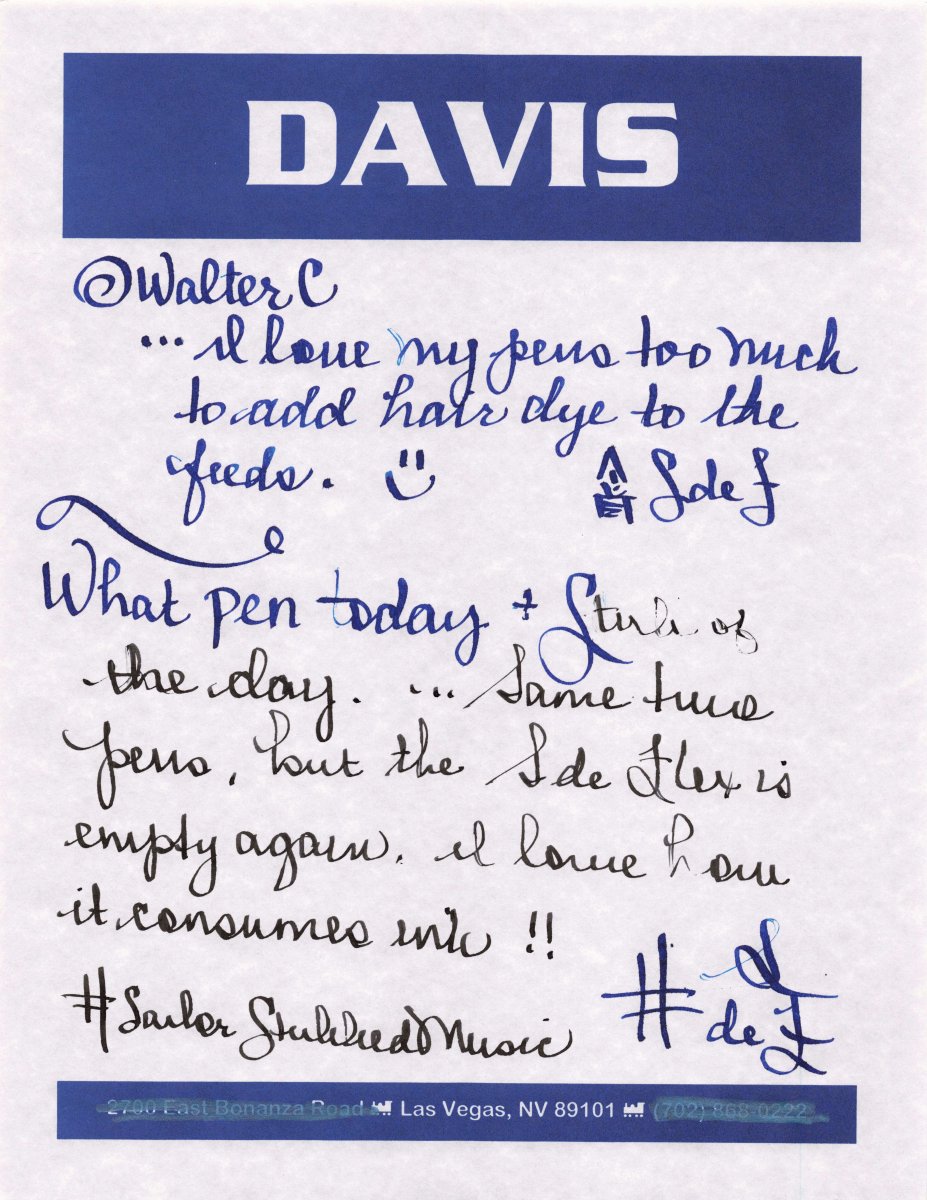 DAVIS
@Walter C
... I love my pens too much
to add hair dye to the
feeds.
S de F
What pen today +
the day. ... Same two
pens, but the S de Flex is
empty again. I love how
it consumes ink !!
#Sailor Stubbed Music
# S
de F
2700 East Bonanza Road Las Vegas, NV 89101 (702) 868-0222